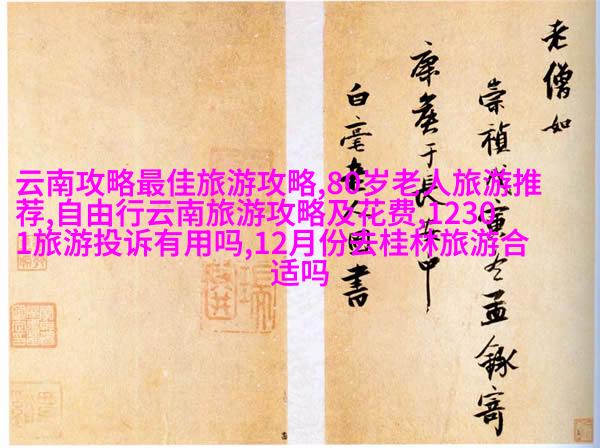 云南攻略最佳旅游攻略,80岁老人旅游推
荐,自由行云南旅游攻略及花费,1230
1旅游投诉有用吗,12月份去桂林旅游合
适吗
老僧如
崇禎戊寅冬孟錄寄
于長
白毫書